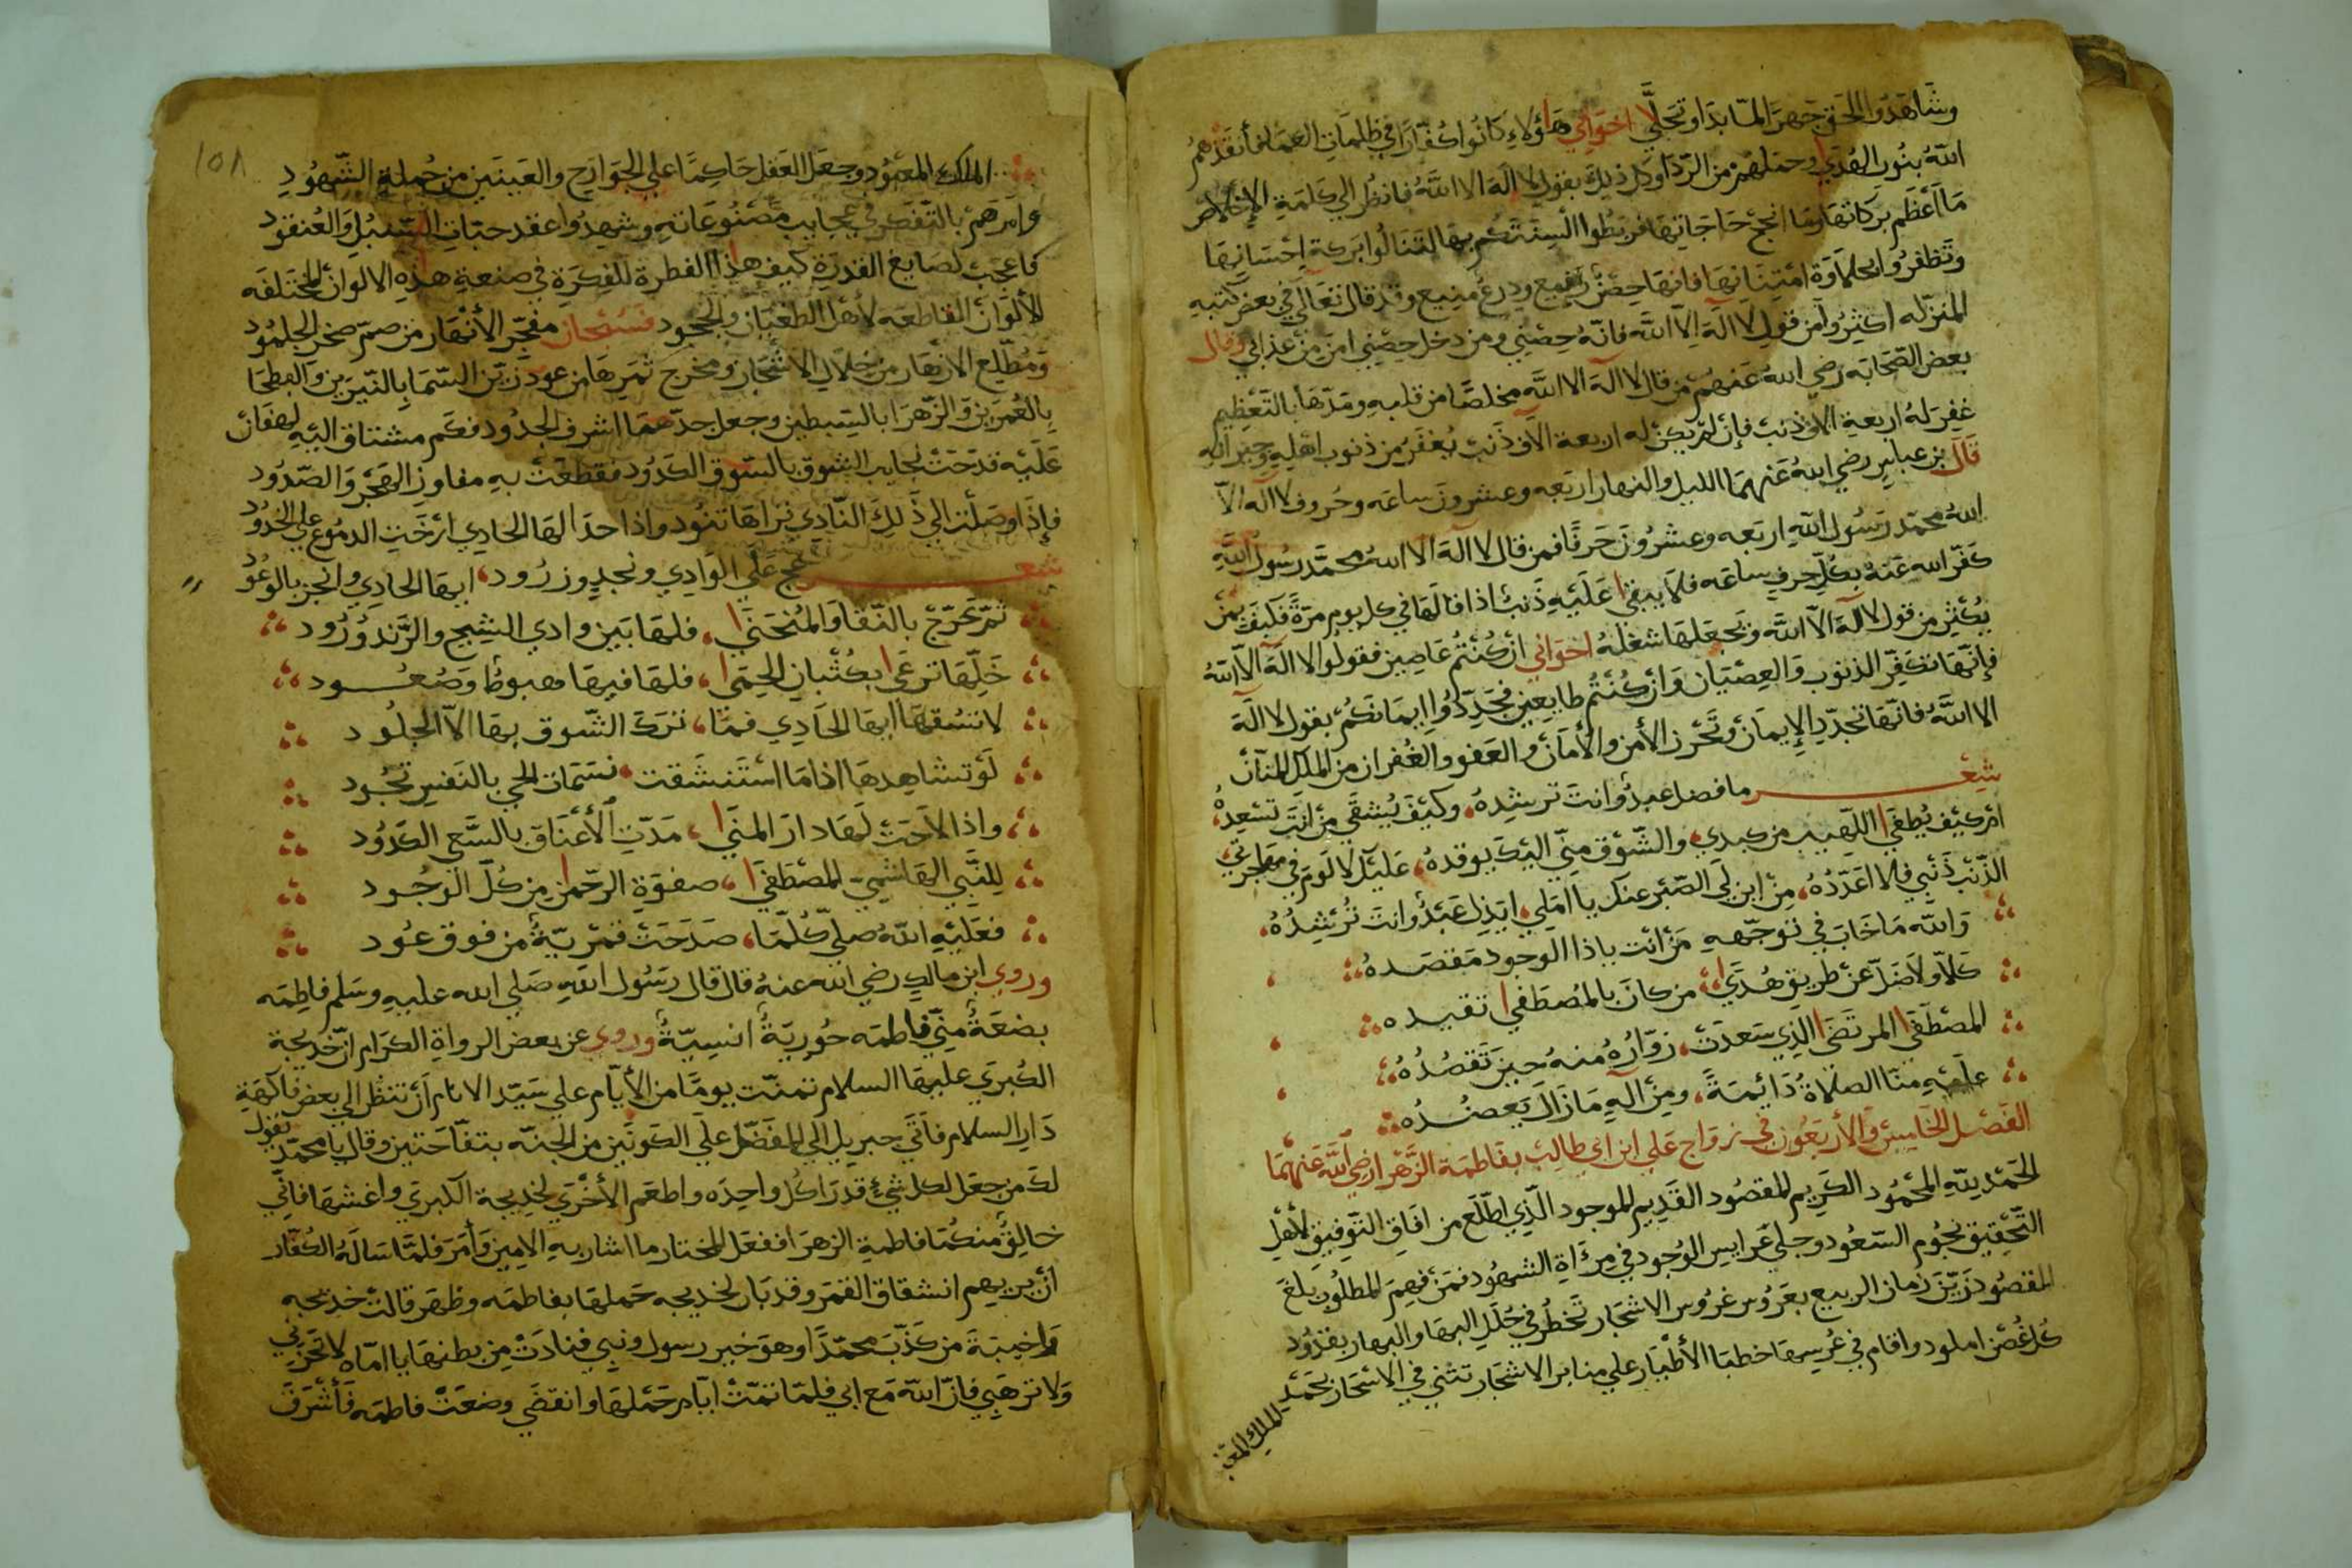 وشَاهَدُوا الحَق جَهرًا لمّا بدَا وتجَلَّي اخوَاني هَاؤلآءِ كَانُوا كُفّارًا في ظلمَاتِ العمَا فأنقَذهُم
اللهُ بنُور الهُدَي وحمَلهُمْ من الرّدَا وكل ذلِكَ بقول لا الَهَ الا اللهُ فانظُر الي كَلمَةِ الإخلاص
مَا أعْظَم بركاتهَا ومَا انجحَ حَاجَاتِهَا فربطُوا ألسِنَتَكُم بهَا لتنَالُوا بَركة إحْسَانِهَا
وتظفرُوا بحلاَوَة امْتِنَانِهَا فانهَا حِصْنٌ رفيع ودِرعٌ منيع وقد قال تعَالي في بعضِ كتبهِ
المنزله اكثِرُوا من قول لا الَهَ اِلاّ الله فانهُ حِصْني ومن دخل حِصْني امِنَ مِنْ عذَابي وقال
بعض الصّحَابه رَضي اللهُ عَنهُمْ من قال لا الَهَ الا الله مخلصًا من قلبهِ ومَدّهَا بالتّعْظِيم
غفِرَ لهُ اربعةِ الاف ذنبْ فإن لمْ يكنْ له اربعة الآف ذَنبْ يُغفَرُ من ذنوب اهلِهِ وجيرانِهِ
قَالَ بن عباسٍ رضي اللهُ عَنهمَا الليل والنهار اربَعه وعشرون ساعَه وحُروف لا اله الاّ
اللهُ محمّد رسُول اللهِ اربَعه وعشرُونَ حَرفًا فمن قال لا الَهَ الا اللهُ محمَّد رسُول اللهِ
كفّر الله عَنهُ بكُلّ حِرفٍ ساعَه فلا يبقي عَلَيْهِ ذَنبْ اذا قالهَا في كل يوم مرّة فكَيفَ بمَن
يُكثِر من قول لا الهَ الاّ اللهُ ويجعَلهَا شغلَهُ اخوَاني انْ كُنتُم عَاصِين فقولوا لا الَهَ الاّ اللهُ
فإنّهَا تكَفِّر الذنوب والعِصْيَان وَانْ كُنتُم طايعِين فجَدِّدُوا اِيمَانكُمْ بقول لا الَهَ
الا اللهُ فانهَا تجدّد الإيمَان وتحْرز الأمن والأمَانْ والعَفو والغُفران من الملكِ المنّانْ
شِعْــــــر ما فضل عبدٌ وانتَ ترشِدهُ، وكيْفَ يُشقَي مَنْ انتَ تسْعِدهُ،
امْ كيْف يُطفي اللّهيب من كبدي، والشّوْق منّي اليْكَ يوقدهُ، عَليْكَ لا لَومَ في مهاجرتي،
الذّنْبُ ذَنْبي فلا اعَدّدُهُ، مِنْ اين لي الصّبْر عنك يا امَلي، ايَذِل عَبْدٌ وانتَ تُرْشِدُهُ،
وَالله مَا خَابَ في توجّههِ مَنْ انت ياذا الوجود مَقصَدهُ
كَلاّ ولا ضَلّ عَنْ طريق هُدَي، من كانَ بالمُصطَفي تقيده
المصْطفَي المرتضَي الذِي سَعدَتْ، زوّارُهُ منهُ حينَ تَقصُدُهُ
علَيْهِ منّا الصّلاةُ دَائِمَةً، ومِنْ الهِ مَا زَال يَعضُدُه
الفَصْل الخَامِسْ وَالأربَعُون في زوَاج عَلي ابن ابي طالِبْ بفاطِمَة الزّهْرا رضي اللهُ عَنهُمَا
الحَمْد لِلّهِ المحْمُود الكرِيم المقصُود القَدِيم الموجود الّذِي اطّلَعَ من افَاق التّوفِيق لأهْل
التّحقِيق نجُوم السّعُود وجلي عَرايس الوُجود في مِرْاةِ الشهُود فمَنْ فهِمَ المطلُوب بلغَ
المقصُود زَيّنَ زمَان الربيع بعَرُوس غرُوس الاشجَار تخطُر في حُلَل البهَا والبهار بقدُود
كل غُصْن املود واقام في عُرسِهَا خطبَا الأطْيَار علي منابر الاشجَار تثني في الاسْحَار بحَمْدِ
الملك المعبود
١٥٨
الملك المعبُود وجعَل العَقل حَاكِمًا علي الجَوَارِح والعَينَين من جُملةِ الشّهُودِ
وامَرهمْ بالتّفكر في عجايبِ مَصْنُوعَاتهِ وشهِدُوا عقد حبّاتِ السّنبُل والعُنقود
فاعجَبْ لصَايغ القدرَةِ كيف هذِا الفِطرة للفِكرَةِ في صنعةِ هذِهِ الالوان المختَلفَه
الألوَان القاطعَه لأهل الطغيَان والجحود فسُبْحان مفجّر الأنْهَار من صمّ صخر الجلمُود
ومُطّلِع الازهَار من خلال الاشجَار ومخرِج ثمَرِهَا من عود زيّن السّمَا بالنّيّرَين والبطحَا
بالعُمرين والزّهرَا بالسِبطين وجعل جدّهمَا اشرف الجدُود فكَم مشتاق اليْهِ لهفَان
عَليْه قدحَثْ نجايب الشوق بالسّوق الكدُود فقطعَتْ بهِ مفاوِز الهَجْر والصّدُود
فإذَا وصَلْت الي ذَلِكَ النّادِي ترَاهَا تنود واذا حدَا لهَا الحادِي ارْخَتِ الدمُوع علي الخدُود
شعــــــر عج عَلَي الوَادِي ونجدٍ وزرُود، ايهَا الحادِي وانجز بالوعُود
ثمّ عَرّج بالنّقا وَالمُنحَني، فلهَا بَين وادي الشيح والرَّند وُرُود
خَلِّهَا ترعَي بكُثْبان الحِمَي، فلهَا فيهَا هبوط وَصُعُـــود
لا تسُقهَا ايهَا الحَادِي فمَا، تركَ الشّوق بهَا الاّ الجلُود
لَوْ تشاهِدهَا اذا مَا اسْتَنشَقت، نسَمَات الحي بالنَفس تجُود
واذا لاحَتْ لهَا دار المنَي، مَدّتِ الأعْنَاق بالسَّعي الكدُود
لِلنّبي الهَاشمي المصْطَفي، صفوَةِ الرحمن مِن كُلّ الوجُود
فعَلَيْهِ اللهُ صلّي كُلّمَا، صَدَحَتْ قمْريّةٌ من فوق عُود
وروي ابن مالكٍ رضي الله عنهُ قال قال رسُول اللهِ صَلي الله عليهِ وسَلم فاطِمَه
بضعَةٌ منّي فاطمَه حُوريّةٌ انسِيّةٌ وروي عن بعض الرواةِ الكرَام ان خديجة
الكُبري عليهَا السلام تمنّت يومًا من الأيّام علي سَيّد الانام اَنْ تنظر الي بعض فاكهةِ
دَارِ السلام فأتي جبريل الي المفَضّل علي الكونَين من الجنّه بتفّاحَتين وقال يا محمّد يقول
لكَ من جعَل لكل شيءٍ قدرًا كُل واحِدَه واطعَم الأخْرَي لخدِيجة الكبري واغشهَا فانّي
خالِقٌ منكُمَا فاطمة الزهرَا ففعَل المختار ما اشار بهِ الامِين وَأمَرَ فلمَّا سَالَهُ الكفّار
اَنْ يريهم انشقاق القمَر وقد بَان لخديجه حَملهَا بفاطمَه وظهَر قالتْ خديجه
وَاخيبَةَ من كَذّبَ محمّدًا وهوَ خير رسول ونبي فنادَتْ مِن بطنِهَا يا امّاه لا تحزَني
وَلا ترهَبي فانّ اللهَ مَع ابي فلمّا تمّتْ ايّام حَمْلهَا وانقضَي وضعَتْ فاطمَه فَأشْرَقَ